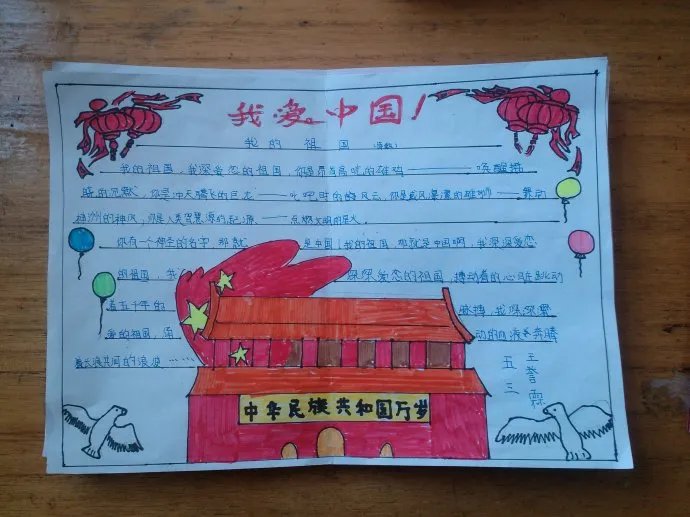 我爱中国！
我的祖国（节选）
我的祖国，我深爱恋的祖国，你是昂首高吭的雄鸡——唤醒拂
晓的沉默，你是冲天腾飞的巨龙——叱咤时的风云，你是威风凛凛的雄狮——舞动
神洲的神风，你是人类智慧源的起源——点燃文明的星火。
你有一个神圣的名字，那就是中国！我的祖国，那就是中国啊，我深深爱恋
的祖国，我深深爱恋的祖国，搏动着的心脏跳动
着五千年的脉搏，我深深爱
恋的祖国，涌动的浪奔腾
着长浪共同的浪波……
五三
王誉霖
中华民族共和国万岁